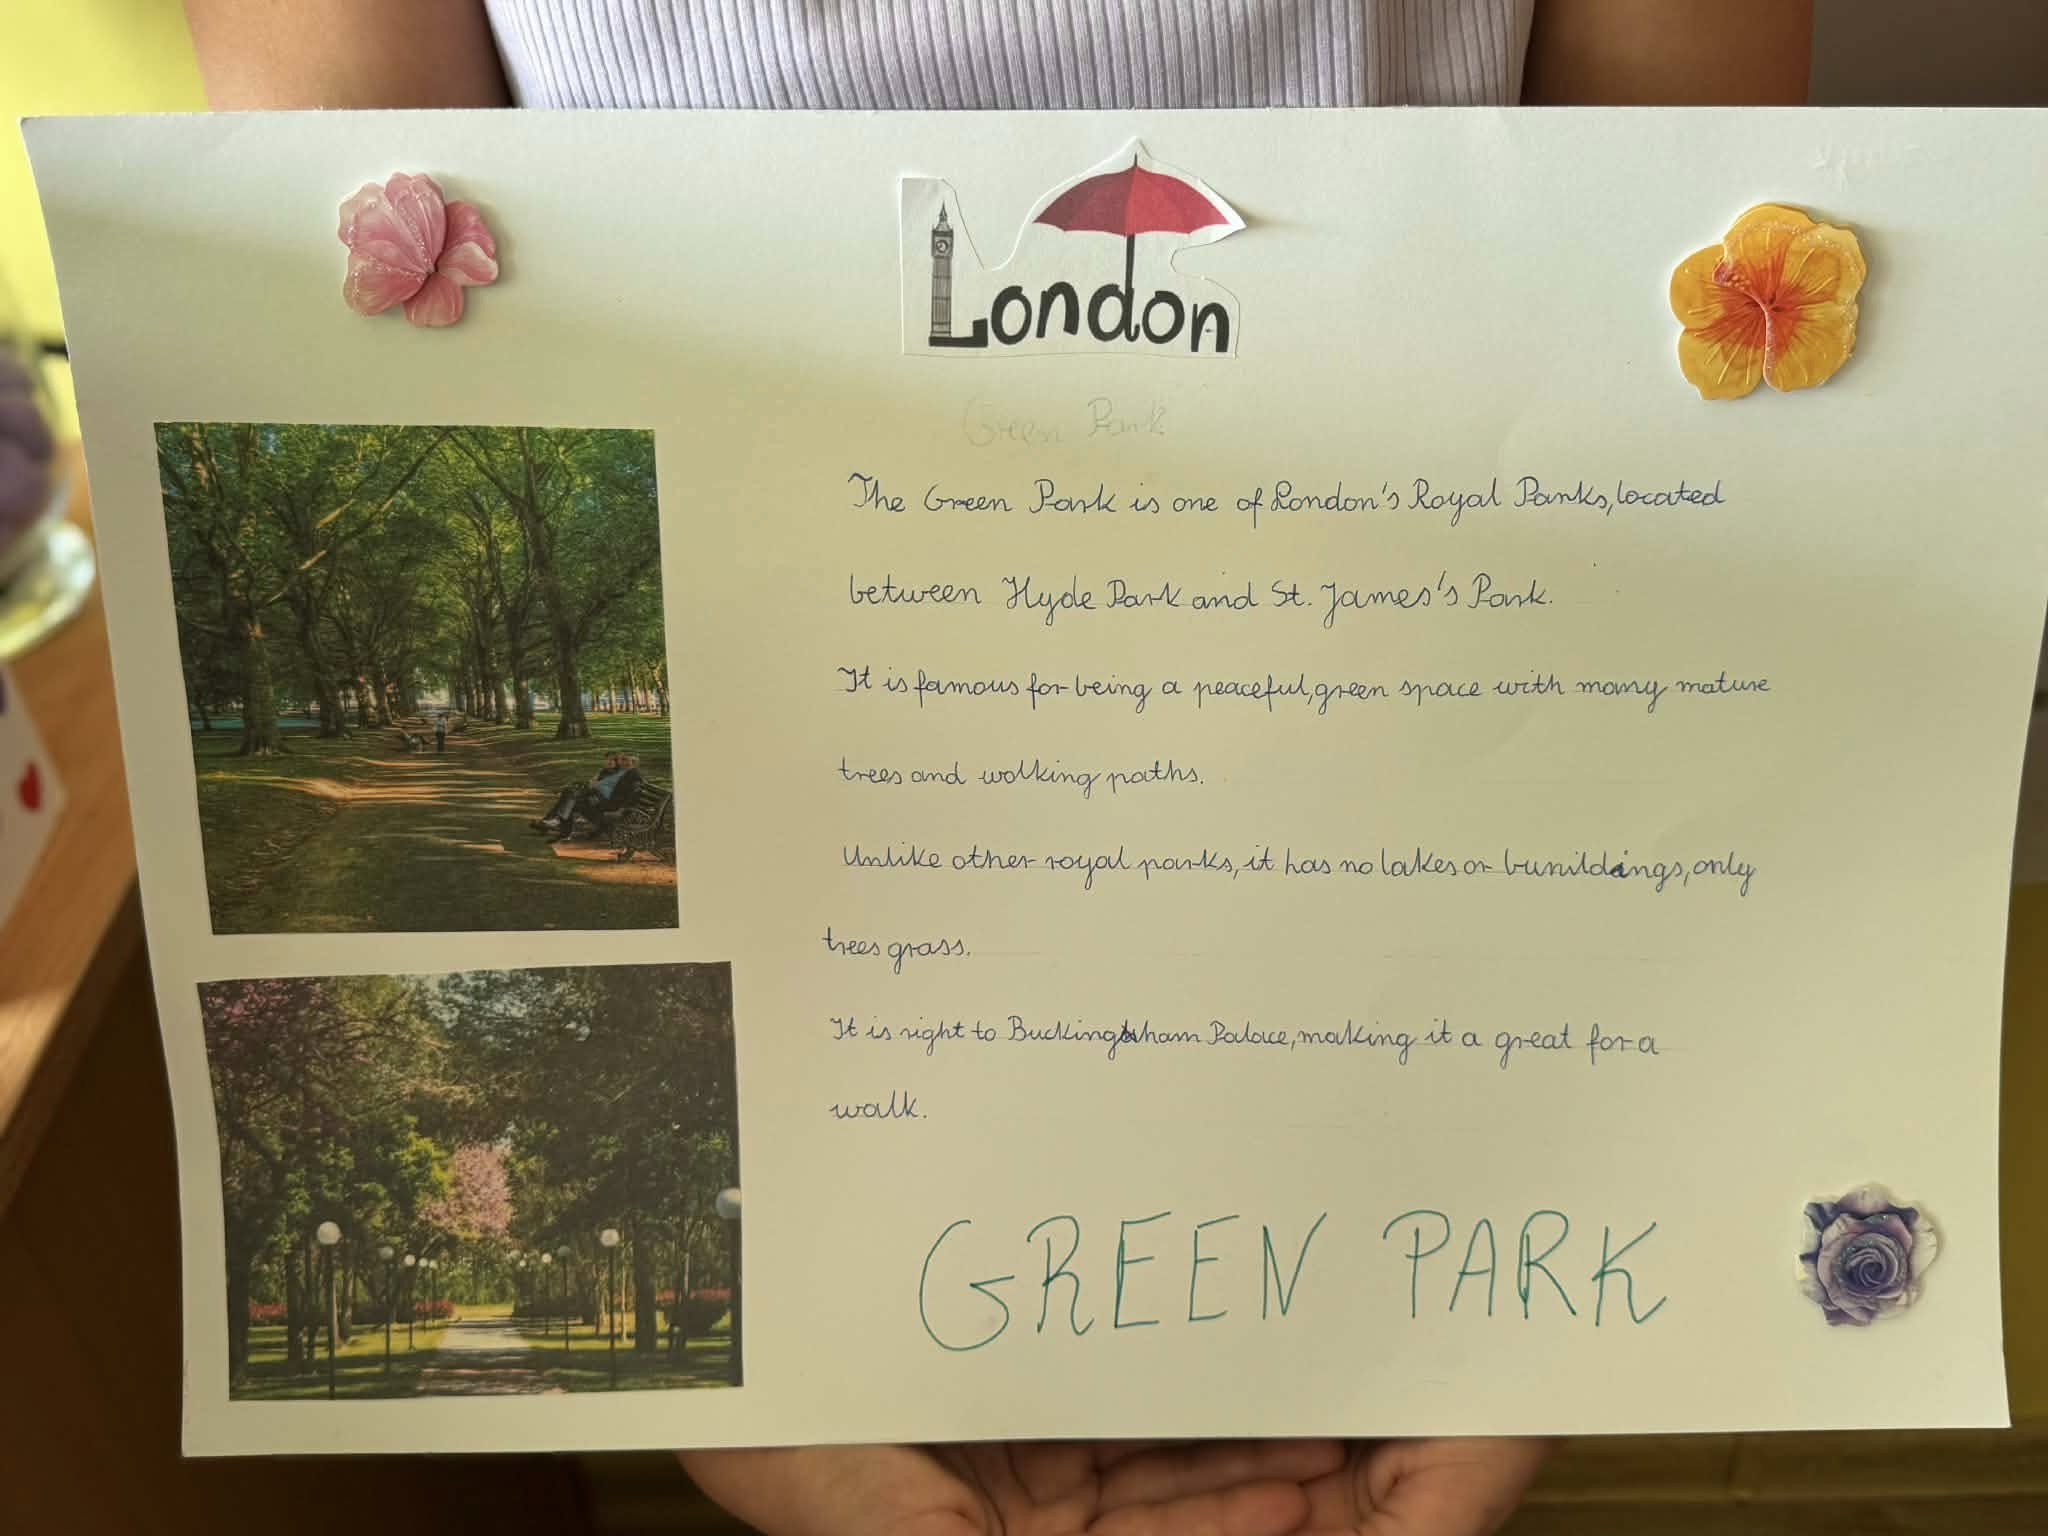 London
Green Park
The Green Park is one of London's Royal Parks, located
between Hyde Park and St. James's Park.
It is famous for being a peaceful, green space with many mature
trees and walking paths.
Unlike other royal parks, it has no lakes or bunildings, only
trees grass.
It is right to Buckingham Palace, making it a great for a
walk.
GREEN PARK